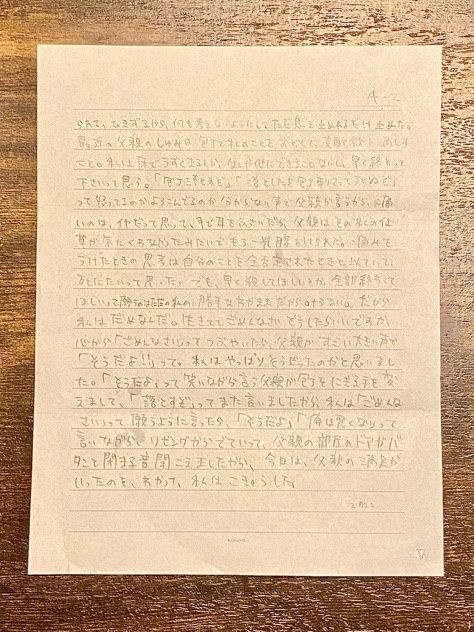 4-2
られて、ひきずるから、何も考えないようにしてただ息を止めれるだけ止めた。
最近の父親のしゅみは包丁で私のことをおどして、
こと。私は床でうずくまるしか、なんか他にできることないし、早く終わって
下さいって思う。「包丁落とすぞ」「落としたら包丁刺さって死ぬぞ」
って怒ってるのかよろこんでるのか分からない声で父親が言うから、痛
いのは、イヤだって思って、手で耳をふさいだら、父親はその私の仕
草が気にくわなかったみたいでもう一発腹をけられた。痛みを
うけたときの思考は自分のことを全否定されたときと似ていて、
死にたいって思いたい。でも、早く殺してほしいとか、全部終わって
ほしいって願うのはただの私の勝手なわがままだから。だから
私はだめなんだ。生きててごめんなさい。どうしたらいいですか。
心から「ごめんなさい」ってつぶやいたら、父親がすごい大きい声で
「そうだよ!!」って。私はやっぱりそうだったのかと思いまし
た。「そうだよ」って笑いながら言う父親が包丁をにぎる手を変
えまして、「落とすぞ」ってまた言いましたから、私は「ごめんな
さい」って願うように言ったら、「そうだよ」「俺は悪くない」って
言いながら、リビングからでていって、父親の部屋のドアがバ
タンと閉まる音聞こえましたから、今日は、父親の満足が
いったのを、わかって、私はこきゅうした。
KOKUYO
W